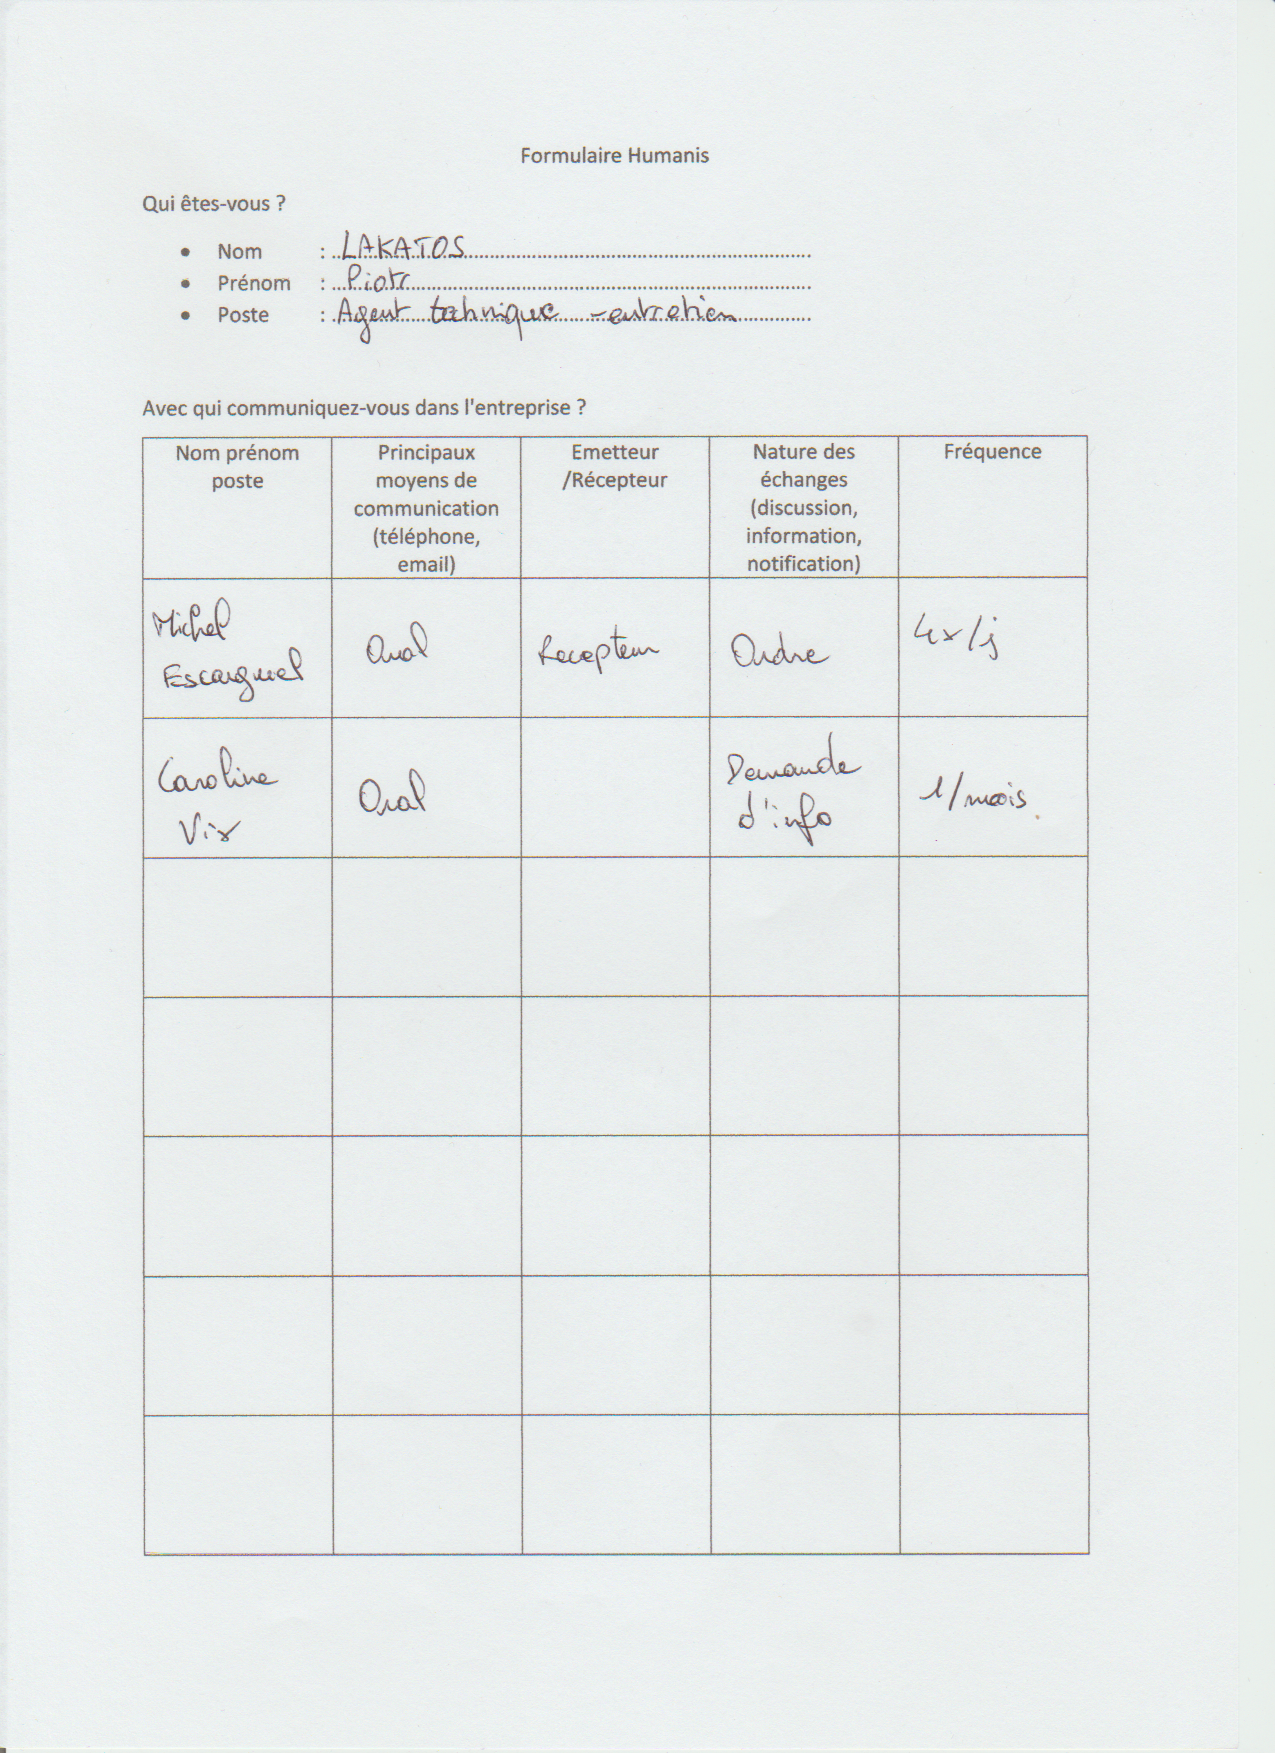 Formulaire Humanis
Qui êtes-vous ?
• Nom : LAKATOS
• Prénom : Piotr
• Poste : Agent technique - entretien
Avec qui communiquez-vous dans l'entreprise ?
Nom prénom
poste
Principaux
moyens de
communication
(téléphone,
email)
Emetteur
/Récepteur
Nature des
échanges
(discussion,
information,
notification)
Fréquence
Michel
Escarguel
Oral
Recepteur
Ordre
4x/j
Caroline
Vix
Oral
Demande
d'info
1/mois.